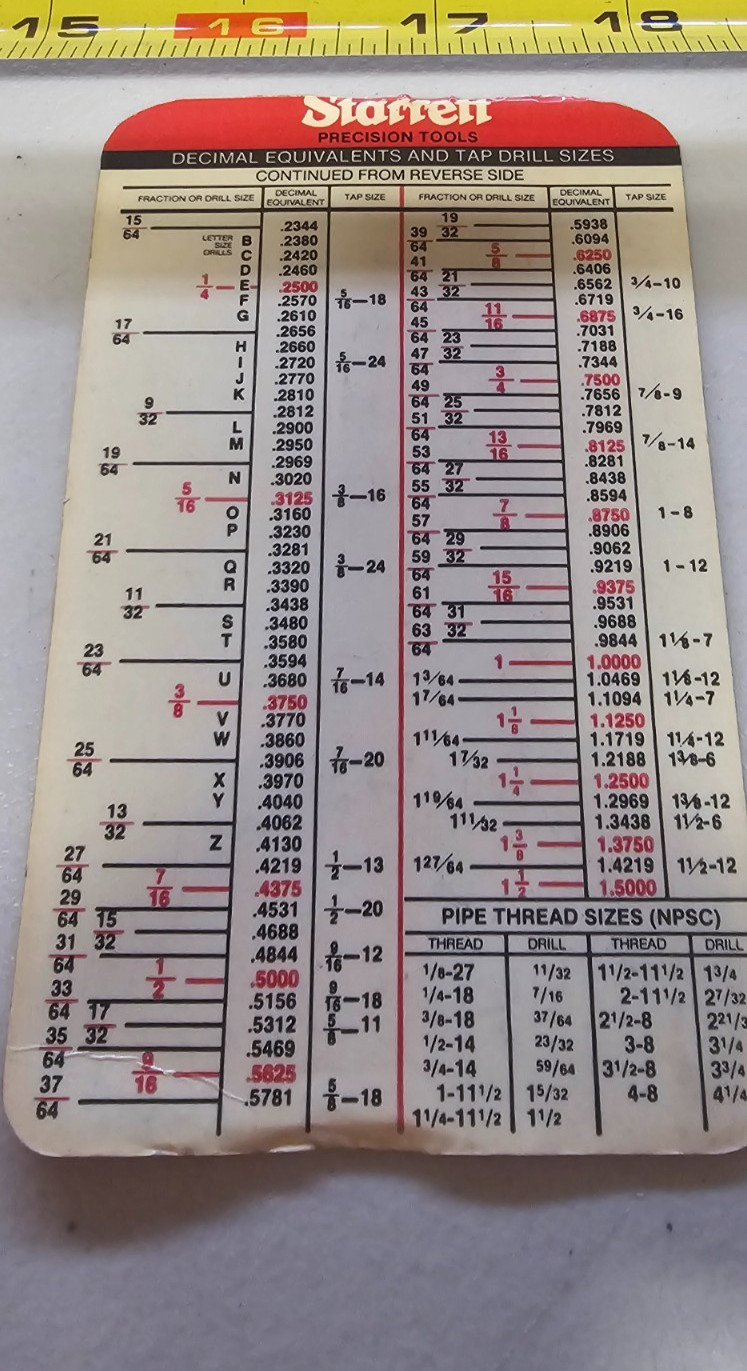 15 16 17 18
Starrett
PRECISION TOOLS
DECIMAL EQUIVALENTS AND TAP DRILL SIZES
CONTINUED FROM REVERSE SIDE
FRACTION OR DRILL SIZE DECIMAL EQUIVALENT TAP SIZE
15/64 .2344
LETTER SIZE DRILLS B .2380
C .2420
D .2460
1/4 E .2500
F .2570 5/16-18
G .2610
17/64 .2656
H .2660
I .2720 5/16-24
J .2770
K .2810
9/32 .2812
L .2900
M .2950
19/64 .2969
N .3020
5/16 .3125 3/8-16
O .3160
P .3230
21/64 .3281
Q .3320 3/8-24
R .3390
11/32 .3438
S .3480
T .3580
23/64 .3594
U .3680 7/16-14
3/8 .3750
V .3770
W .3860
25/64 .3906 7/16-20
X .3970
Y .4040
13/32 .4062
Z .4130
27/64 .4219 1/2-13
7/16 .4375
29/64 .4531 1/2-20
15/32 .4688
31/64 .4844 9/16-12
1/2 .5000
33/64 .5156 9/16-18
17/32 .5312 5/8-11
35/64 .5469
9/16 .5625
37/64 .5781 5/8-18
FRACTION OR DRILL SIZE DECIMAL EQUIVALENT TAP SIZE
19/32 .5938
39/64 .6094
5/8 .6250
41/64 .6406
21/32 .6562 3/4-10
43/64 .6719
11/16 .6875 3/4-16
45/64 .7031
23/32 .7188
47/64 .7344
3/4 .7500
49/64 .7656 7/8-9
25/32 .7812
51/64 .7969
13/16 .8125 7/8-14
53/64 .8281
27/32 .8438
55/64 .8594
7/8 .8750 1-8
57/64 .8906
29/32 .9062
59/64 .9219 1-12
15/16 .9375
61/64 .9531
31/32 .9688
63/64 .9844 1 1/8-7
1 1.0000
1 3/64 1.0469 1 1/8-12
1 7/64 1.1094 1 1/4-7
1 1/8 1.1250
1 11/64 1.1719 1 1/4-12
1 7/32 1.2188 1 3/8-6
1 1/4 1.2500
1 19/64 1.2969 1 3/8-12
1 11/32 1.3438 1 1/2-6
1 3/8 1.3750
1 27/64 1.4219 1 1/2-12
1 1/2 1.5000
PIPE THREAD SIZES (NPSC)
THREAD DRILL THREAD DRILL
1/8-27 11/32 1 1/2-11 1/2 1 3/4
1/4-18 7/16 2-11 1/2 2 7/32
3/8-18 37/64 2 1/2-8 2 21/3
1/2-14 23/32 3-8 3 1/4
3/4-14 59/64 3 1/2-8 3 3/4
1-11 1/2 1 5/32 4-8 4 1/4
1 1/4-11 1/2 1 1/2